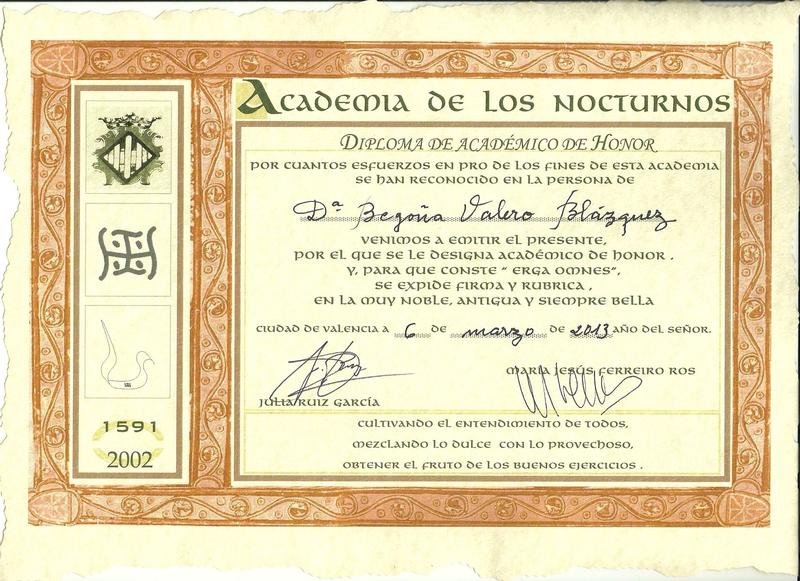 ACADEMIA DE LOS NOCTURNOS
DIPLOMA DE ACADÉMICO DE HONOR
POR CUANTOS ESFUERZOS EN PRO DE LOS FINES DE ESTA ACADEMIA
SE HAN RECONOCIDO EN LA PERSONA DE
Dª Begoña Valero Blázquez
VENIMOS A EMITIR EL PRESENTE,
POR EL QUE SE LE DESIGNA ACADÉMICO DE HONOR .
Y, PARA QUE CONSTE " ERGA OMNES",
SE EXPIDE FIRMA Y RUBRICA ,
EN LA MUY NOBLE, ANTIGUA Y SIEMPRE BELLA
CIUDAD DE VALENCIA A 6 DE marzo DE 2013 AÑO DEL SEÑOR.
MARÍA JESÚS FERREIRO ROS
JULIA RUIZ GARCÍA
CULTIVANDO EL ENTENDIMIENTO DE TODOS,
MEZCLANDO LO DULCE CON LO PROVECHOSO,
OBTENER EL FRUTO DE LOS BUENOS EJERCICIOS .
1591
2002